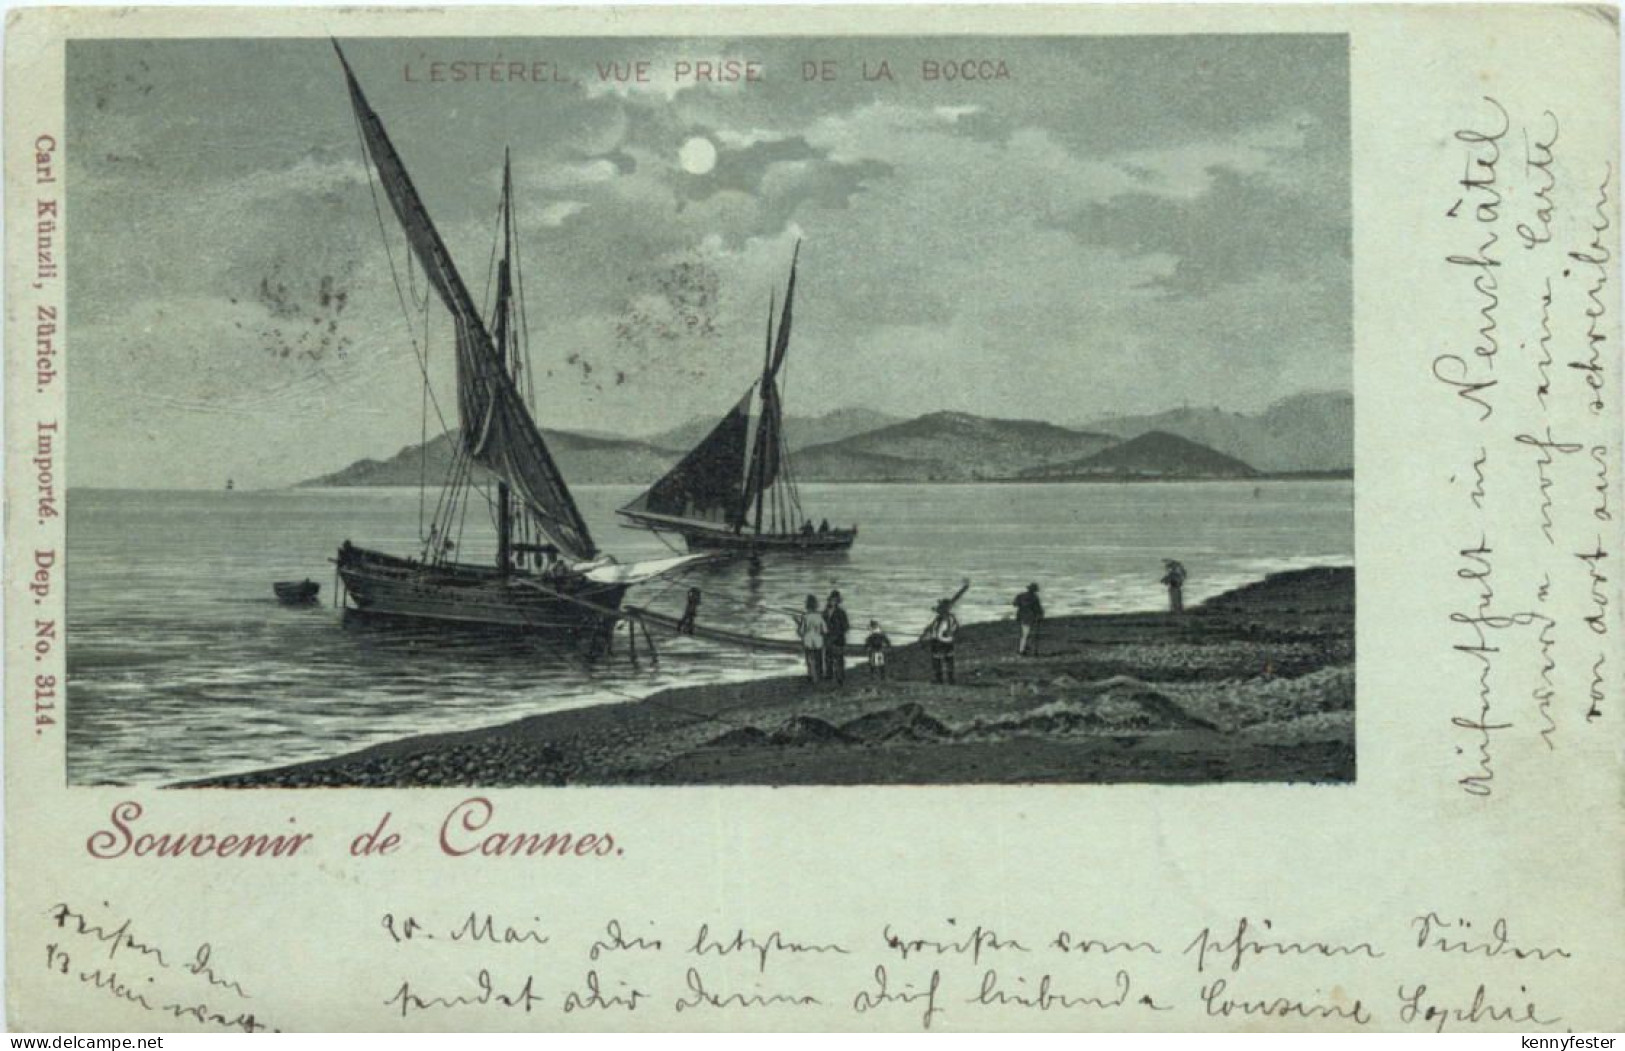 L'ESTÉREL, VUE PRISE DE LA BOCCA
Carl Künzli, Zürich. Importé. Dep. No. 3114.
Souvenir de Cannes.
reisen den
13 Mai weg.
10. Mai Die letzten Grüße vom schönen Süden
sendet dir deine Dich liebende Cousine Sophie.
Aufenthalt in Neuchâtel
werde noch eine Carte
von dort aus schreiben
delcampe.net
kennyfester